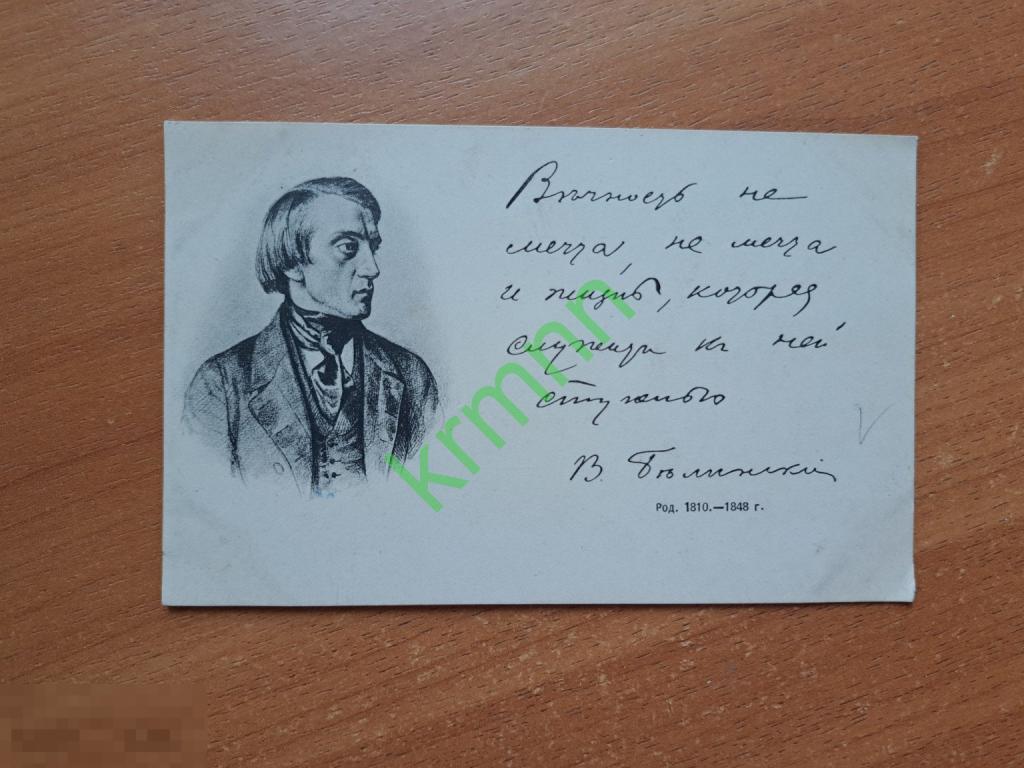 Вѣчность не
мечта, не мечта
и жизнь, которая
служитъ къ ней
ступенью
В. Бѣлинскій
Род. 1810.—1848 г.
krmnn